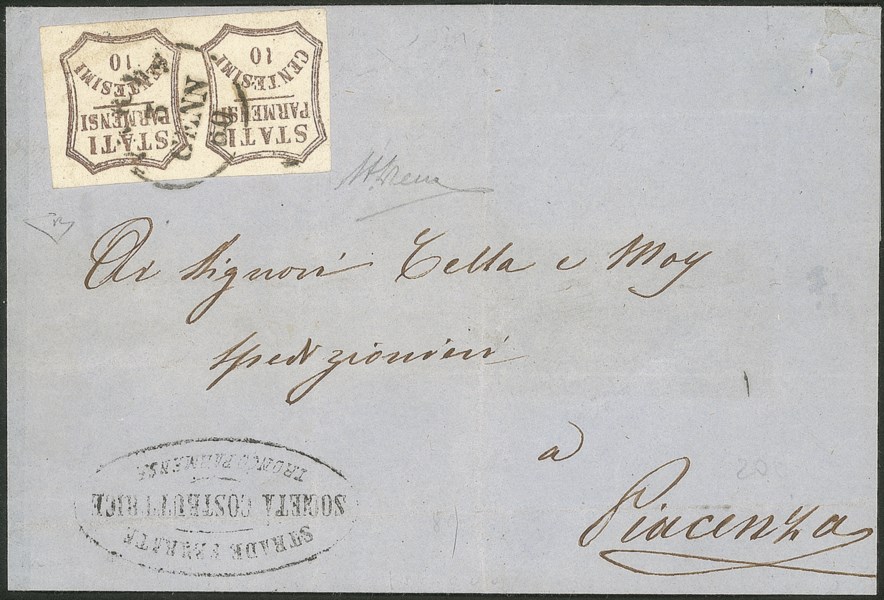 STATI
PARMENSI
CENTESIMI
10
STATI
PARMENSI
CENTESIMI
10
GENN
60
Ai Signori Cella e Moy
Spedizionieri
a
Piacenza
STRADE FERRATE
SOCIETÀ COSTRUTTRICE
TRONCO PARMENSE